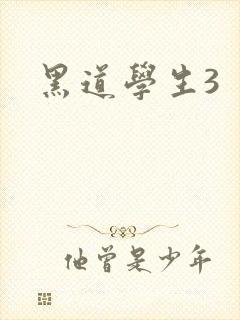 黑道學生3
他曾是少年